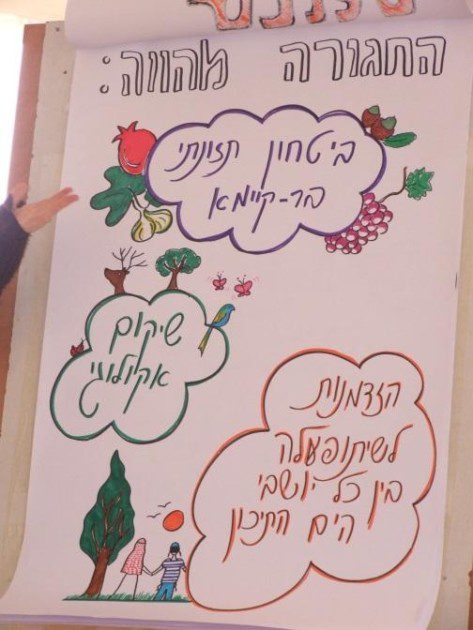 החגורה מהווה:
ביטחון תזונתי
בר-קיימא
שיקום
אקולוגי
הזדמנות
לשיתופעלה
בין כל יושבי
הים התיכון